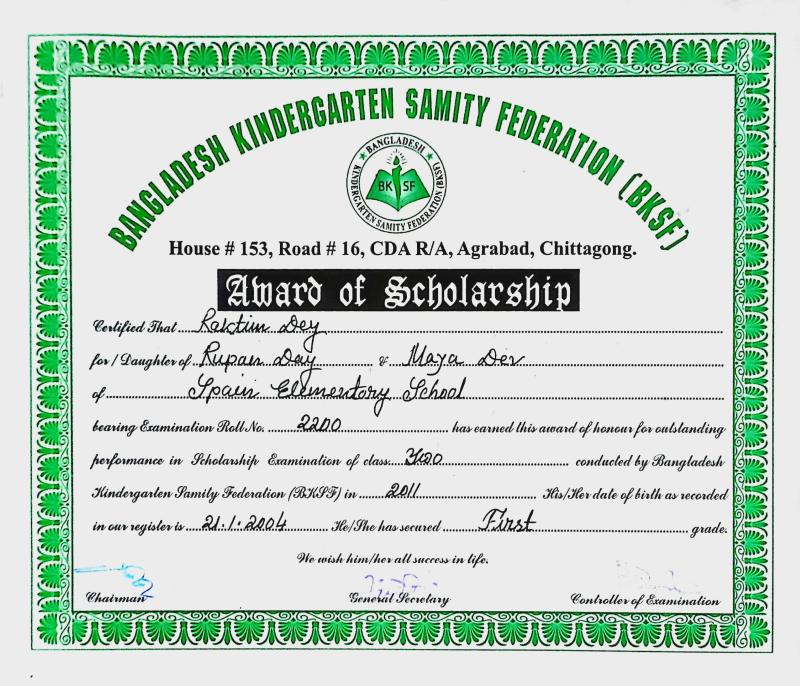 BANGLADESH KINDERGARTEN SAMITY FEDERATION (BKSF)
BANGLADESH
BK SF
KINDERGARTEN SAMITY FEDERATION (BKSF)
House # 153, Road # 16, CDA R/A, Agrabad, Chittagong.
Award of Scholarship
Certified That Raktim Dey
for / Daughter of Rupan Day & Maya Dev
of Spain Elementary School
bearing Examination Roll No. 2200 has earned this award of honour for outstanding
performance in Scholarship Examination of class two conducted by Bangladesh
Kindergarten Samity Federation (BKSF) in 2011 His/Her date of birth as recorded
in our register is 21.1.2004 He/She has secured First grade.
We wish him/her all success in life.
Chairman General Secretary Controller of Examination